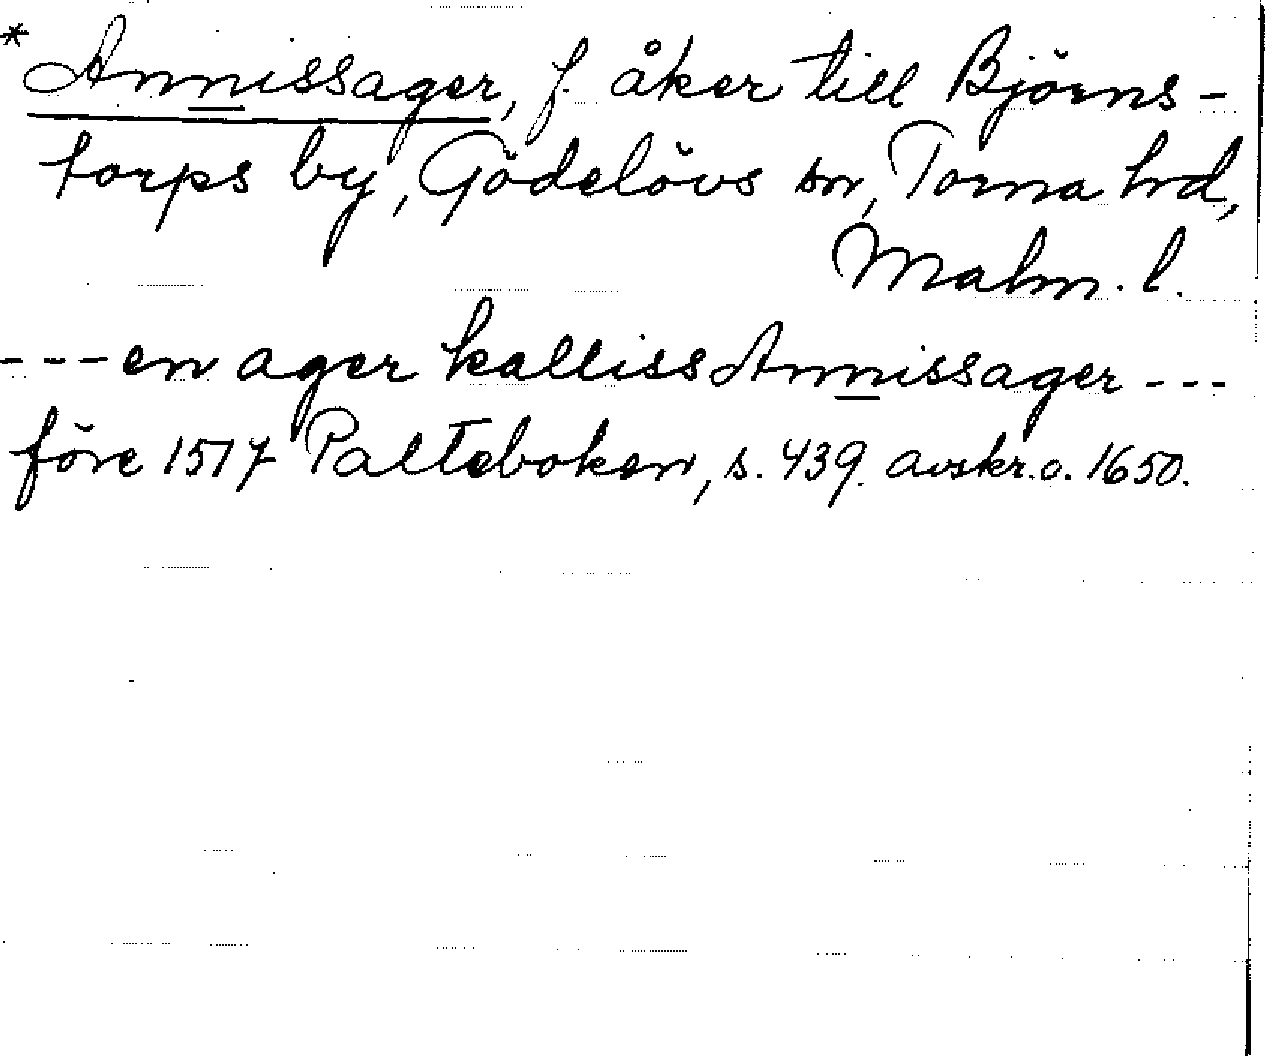 * Annissager, f. åker till Björns-
torps by, Gödelövs sn, Torna hrd,
Malm. l.
---en ager kalliss Annissager ---
före 1517 Palteboken, s. 439. avskr. o. 1650.